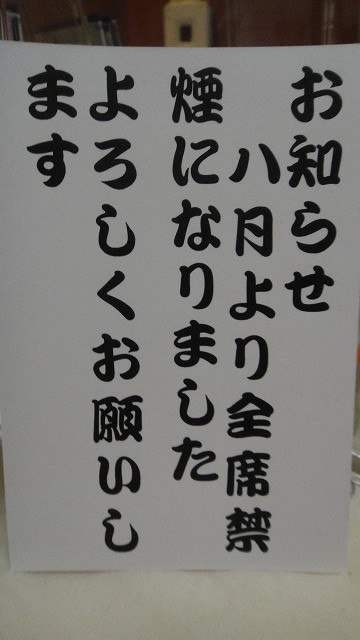 お知らせ
八月より全席禁
煙になりました
よろしくお願いし
ます